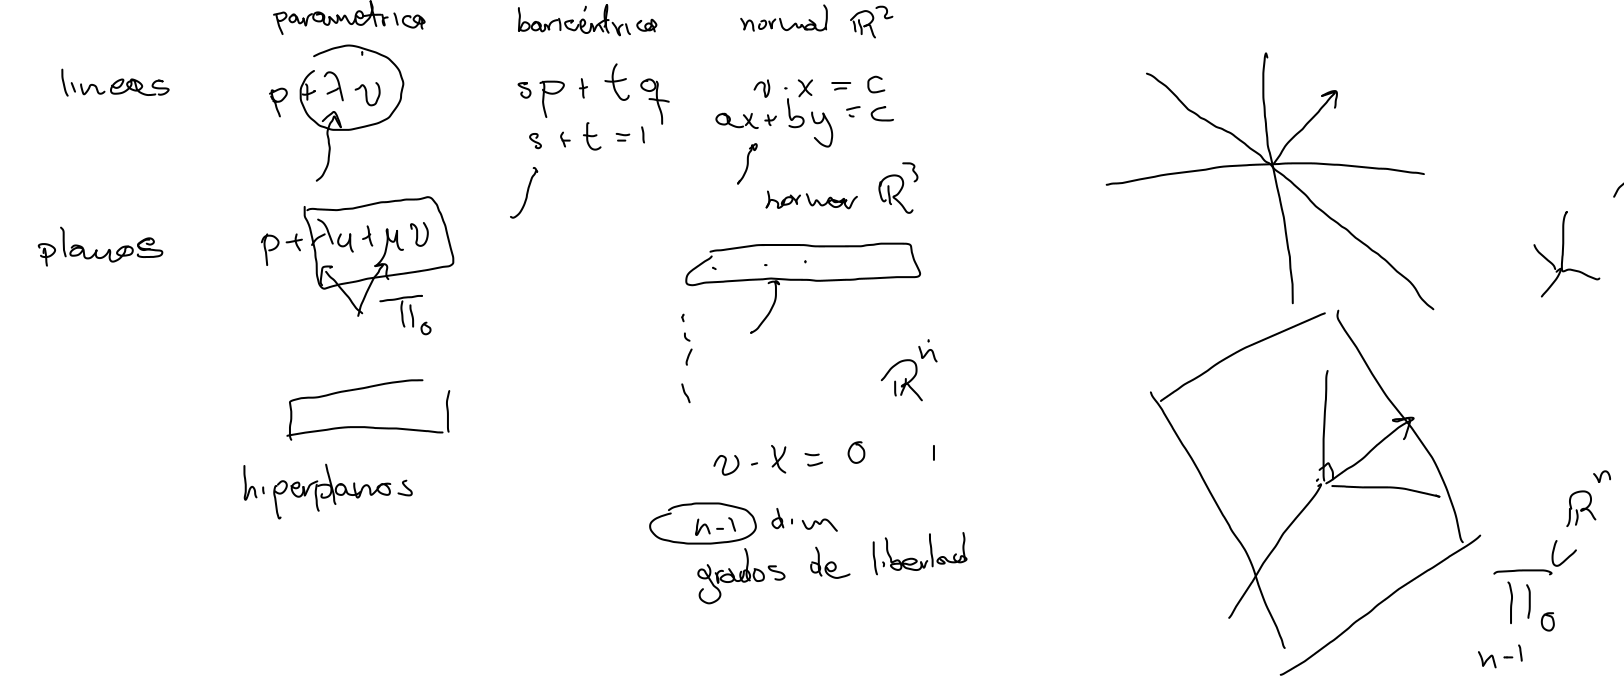 parametrica baricéntrica normal ℝ²
lineas p + λv sp + tq v · x = c
s + t = 1 ax + by = c
normal ℝ³
planos p + λu + μv
Π₀
ℝⁿ
v · x = 0
hiperplanos
n-1 dim
grados de libertad
ℝⁿ
Π₀
n-1